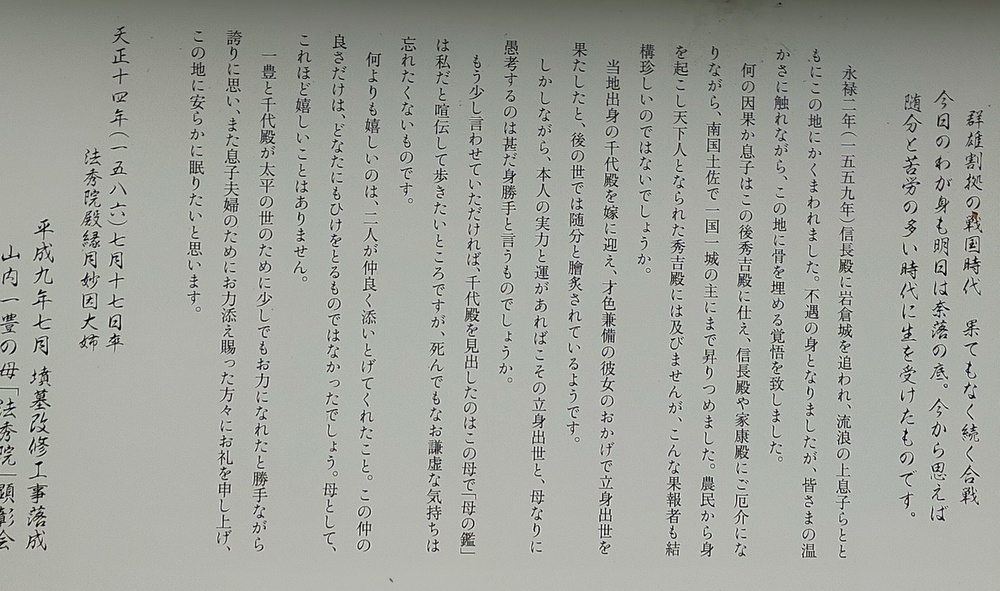 群雄割拠の戦国時代　果てもなく続く合戦
今日のわが身も明日は奈落の底。今から思えば
随分と苦労の多い時代に生を受けたものです。
永禄二年（一五五九年）信長殿に岩倉城を追われ、流浪の上息子らとと
もにこの地にかくまわれました。不遇の身となりましたが、皆さまの温
かさに触れながら、この地に骨を埋める覚悟を致しました。
何の因果か息子はこの後秀吉殿に仕え、信長殿や家康殿にご厄介にな
りながら、南国土佐で一国一城の主にまで昇りつめました。農民から身
を起こし天下人となられた秀吉殿には及びませんが、こんな果報者も結
構珍しいのではないでしょうか。
当地出身の千代殿を嫁に迎え、才色兼備の彼女のおかげで立身出世を
果たしたと、後の世では随分と膾炙されているようです。
しかしながら、本人の実力と運があればこその立身出世と、母なりに
愚考するのは甚だ身勝手と言うものでしょうか。
もう少し言わせていただければ、千代殿を見出したのはこの母で「母の鑑」
は私だと喧伝して歩きたいところですが、死んでもなお謙虚な気持ちは
忘れたくないものです。
何よりも嬉しいのは、二人が仲良く添いとげてくれたこと。この仲の
良さだけは、どなたにもひけをとるものではなかったでしょう。母として、
これほど嬉しいことはありません。
一豊と千代殿が太平の世のために少しでもお力になれたと勝手ながら
誇りに思い、また息子夫婦のためにお力添え賜った方々にお礼を申し上げ、
この地に安らかに眠りたいと思います。
天正十四年（一五八六）七月十七日卒
法秀院殿縁月妙因大姉
平成九年七月　墳墓改修工事落成
山内一豊の母「法秀院」顕彰会